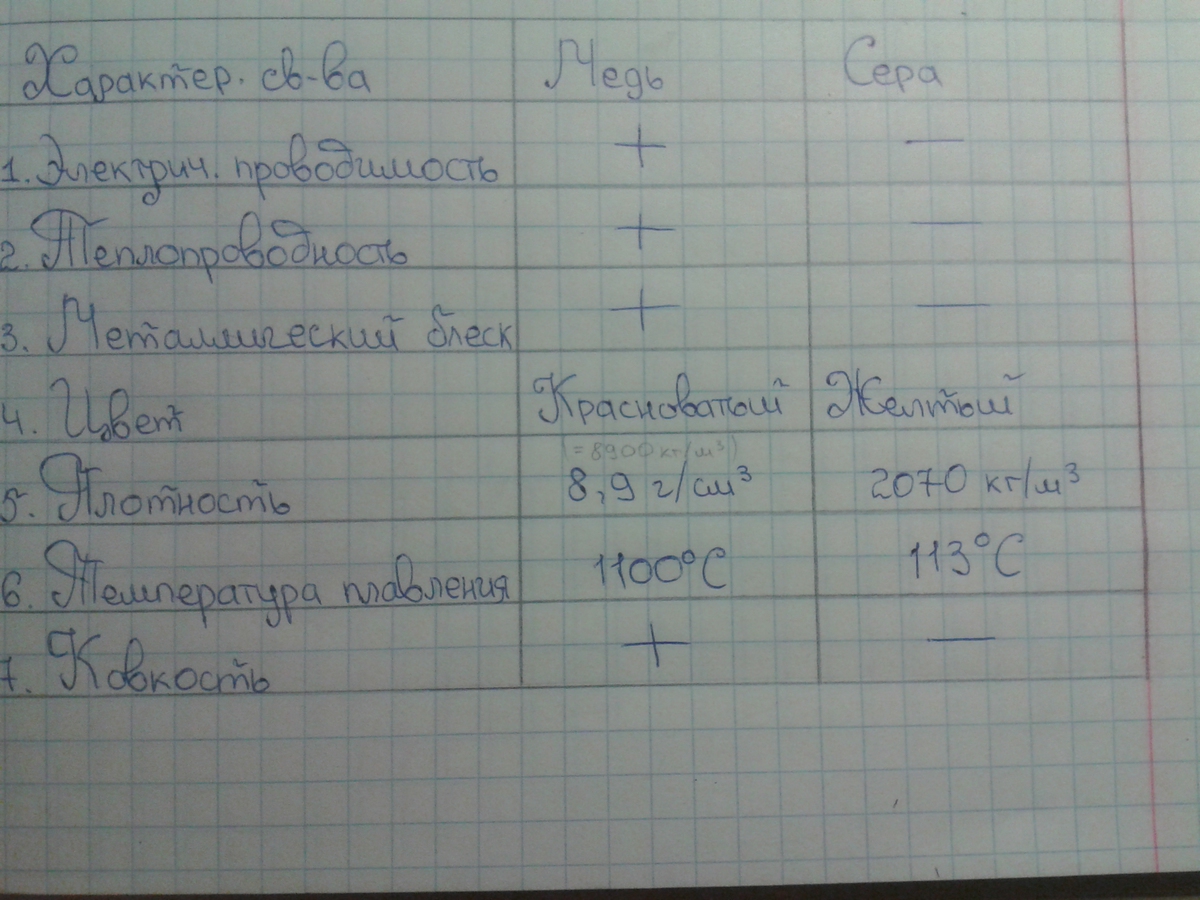 Характер. св-ва Медь Сера
1. Электрич. проводимость + —
2. Теплопроводность + —
3. Металлический блеск + —
4. Цвет Красноватый Желтый
(= 8900 кг/м³)
5. Плотность 8,9 г/см³ 2070 кг/м³
6. Температура плавления 1100°C 113°C
7. Ковкость + —